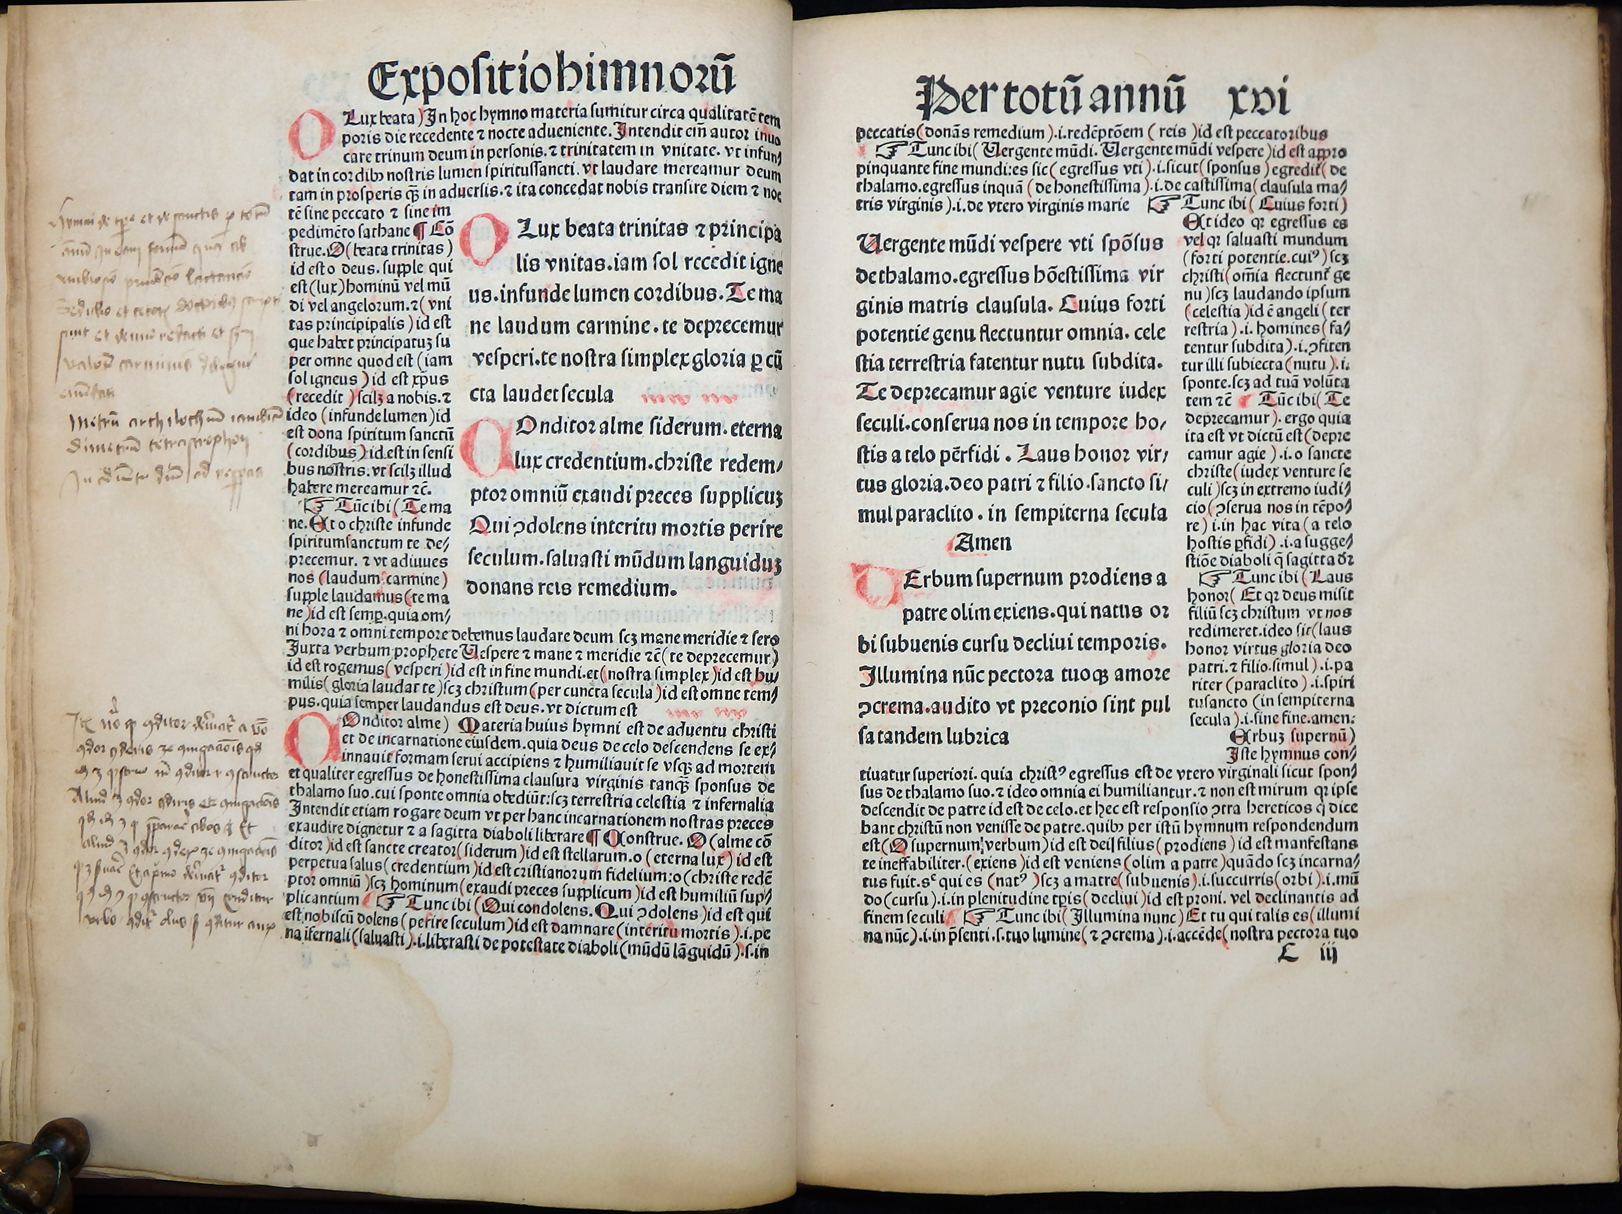 Expositio himnorū
O Lux beata) In hoc hymno materia sumitur circa qualitatē tem
poris die recedente ⁊ nocte adueniente. Intendit em̄ autor inuo
care trinum deum in personis. ⁊ trinitatem in vnitate. vt infun⸗
dat in cordibꝰ nostris lumen spiritussancti. vt laudare mereamur deum
tam in prosperis qꝫ in aduersis. ⁊ ita concedat nobis transire diem ⁊ noc
tē sine peccato ⁊ sine im
pedimēto sathane ¶ Cō
strue. O (beata trinitas)
id est o deus. supple qui
est (lux) hominū vel mū
di vel angelorum. ⁊ (vni
tas principalis) id est
que habet principatuꝫ su
per omne quod est (iam
sol igneus) id est xpus
(recedit) scilꝫ a nobis. ⁊
ideo (infunde lumen) id
est dona spiritum sanctū
(cordibus) id est in sensi
bus nostris. vt scilꝫ illud
habere mereamur ⁊c̄.
☞ Tūc ibi (Te ma
ne. Et o christe infunde
spiritumsanctum te de⸗
precemur. ⁊ vt adiuues
nos (laudum carmine)
supple laudamus (te ma
ne) id est semꝑ. quia om⸗
O Lux beata trinitas ⁊ principa
lis vnitas. iam sol recedit igne
us. infunde lumen cordibus. Te ma
ne laudum carmine. te deprecemur
vesperi. te nostra simplex gloria ꝑ cū
cta laudet secula
COnditor alme siderum. eterna
lux credentium. christe redem⸗
ptor omniū exaudi preces supplicuꝫ
Qui ꝯdolens interitu mortis perire
seculum. saluasti mūdum languiduꝫ
donans reis remedium.
ni hora ⁊ omni tempore debemus laudare deum scꝫ mane meridie ⁊ sero
Juxta verbum prophete Vespere ⁊ mane ⁊ meridie ⁊c̄ (te deprecemur)
id est rogemus (vesperi) id est in fine mundi. et (nostra simplex) id est hu⸗
milis (gloria laudat te) scꝫ christum (per cuncta secula) id est omne tem⸗
pus. quia semper laudandus est deus. vt dictum est
COnditor alme) Materia huius hymni est de aduentu christi
et de incarnatione eiusdem. quia deus de celo descendens se ex⸗
innauit formam serui accipiens ⁊ humiliauit se vsqꝫ ad mortem
et qualiter egressus de honestissima clausura virginis tanqꝫ sponsus de
thalamo suo. cui sponte omnia obediūt: scꝫ terrestria celestia ⁊ infernalia
Intendit etiam rogare deum vt per hanc incarnationem nostras preces
exaudire dignetur ⁊ a sagitta diaboli liberare ¶ Construe. O (alme cō
ditor) id est sancte creator (siderum) id est stellarum. o (eterna lux) id est
perpetua salus (credentium) id est cristianorum fidelium: o (christe redē
ptor omniū) scꝫ hominum (exaudi preces supplicum) id est humiliū sup⸗
plicantium ☞ Tunc ibi (Qui condolens. Qui ꝯdolens) id est qui
est nobiscū dolens (perire seculum) id est damnare (interitu mortis) .i. pe
na ifernali (saluasti) .i. liberasti de potestate diaboli (mūdū lāguidū) .s. in
Per totū annū xvi
peccatis (donās remedium) .i. redēptōem (reis) id est peccatoribus
☞ Tunc ibi (Vergente mūdi. Vergente mūdi vespere) id est appro
pinquante fine mundi: es sic (egressus vti) .i. sicut (sponsus) egredit̄ (de
thalamo. egressus inquā (de honestissima) .i. de castissima (clausula ma⸗
tris virginis) .i. de vtero virginis marie ☞ Tunc ibi (Cuius forti)
Vergente mūdi vespere vti spōsus
de thalamo. egressus hōestissima vir
ginis matris clausula. Cuius forti
potentie genu flectuntur omnia. cele
stia terrestria fatentur nutu subdita.
Te deprecamur agie venture iudex
seculi. conserua nos in tempore ho⸗
stis a telo pērfidi. Laus honor vir⸗
tus gloria. deo patri ⁊ filio. sancto si⸗
mul paraclito. in sempiterna secula
Amen
VErbum supernum prodiens a
patre olim exiens. qui natus or
bi subuenis cursu decliui temporis.
Illumina nūc pectora tuoqꝫ amore
ꝯcrema. audito vt preconio sint pul
sa tandem lubrica
Et ideo qꝛ egressus es
vel qꝛ saluasti mundum
(forti potentie. cuiꝰ) scꝫ
christi (om̄ia flectunt̄ ge
nu) scꝫ laudando ipsum
(celestia) id ē angeli (ter
restria) .i. homines (fa⸗
tentur subdita) .i. ꝯfiten
tur illi subiecta (nutu) .i.
sponte. scꝫ ad tuā volūta
tem ⁊c̄ Tūc ibi (Te
deprecamur). ergo quia
ita est vt dictū est (depre
camur agie) .i. o sancte
christe (iudex venture se
culi) scꝫ in extremo iudi⸗
cio (ꝯserua nos in tēpo⸗
re) .i. in hac vita (a telo
hostis ꝑfidi) .i. a sugge⸗
stiōe diaboli q̄ sagitta dr̄
☞ Tunc ibi (Laus
honor (Et qꝛ deus misit
filiū scꝫ christum vt nos
redimeret. ideo sit (laus
honor virtus gloria deo
patri. ⁊ filio. simul) .i. pa
riter (paraclito) .i. spiri
tusancto (in sempiterna
secula) .i. sine fine. amen:
(Erbuꝫ supernū)
Iste hymnus con⸗
tiuatur superiori. quia christꝰ egressus est de vtero virginali sicut spon⸗
sus de thalamo suo. ⁊ ideo omnia ei humiliantur. ⁊ non est mirum qꝛ ipse
descendit de patre id est de celo. et hec est responsio ꝯtra hereticos q̄ dice
bant christū non venisse de patre. quibꝰ per istū hymnum respondendum
est (O supernum verbum) id est dei filius (prodiens) id est manifestans
te ineffabiliter. (exiens) id est veniens (olim a patre) quādo scꝫ incarna⸗
tus fuit. sᶜ qui es (natꝰ) scꝫ a matre (subuenis) .i. succurris (orbi) .i. mū
do (cursu) .i. in plenitudine tꝑis (decliui) id est proni. vel declinantis ad
finem seculi ☞ Tunc ibi (Illumina nunc) Et tu qui talis es (illumi
na nūc) .i. in pn̄senti .s. tuo lumine (⁊ ꝯcrema) .i. accēde (nostra pectora tuo
C iij